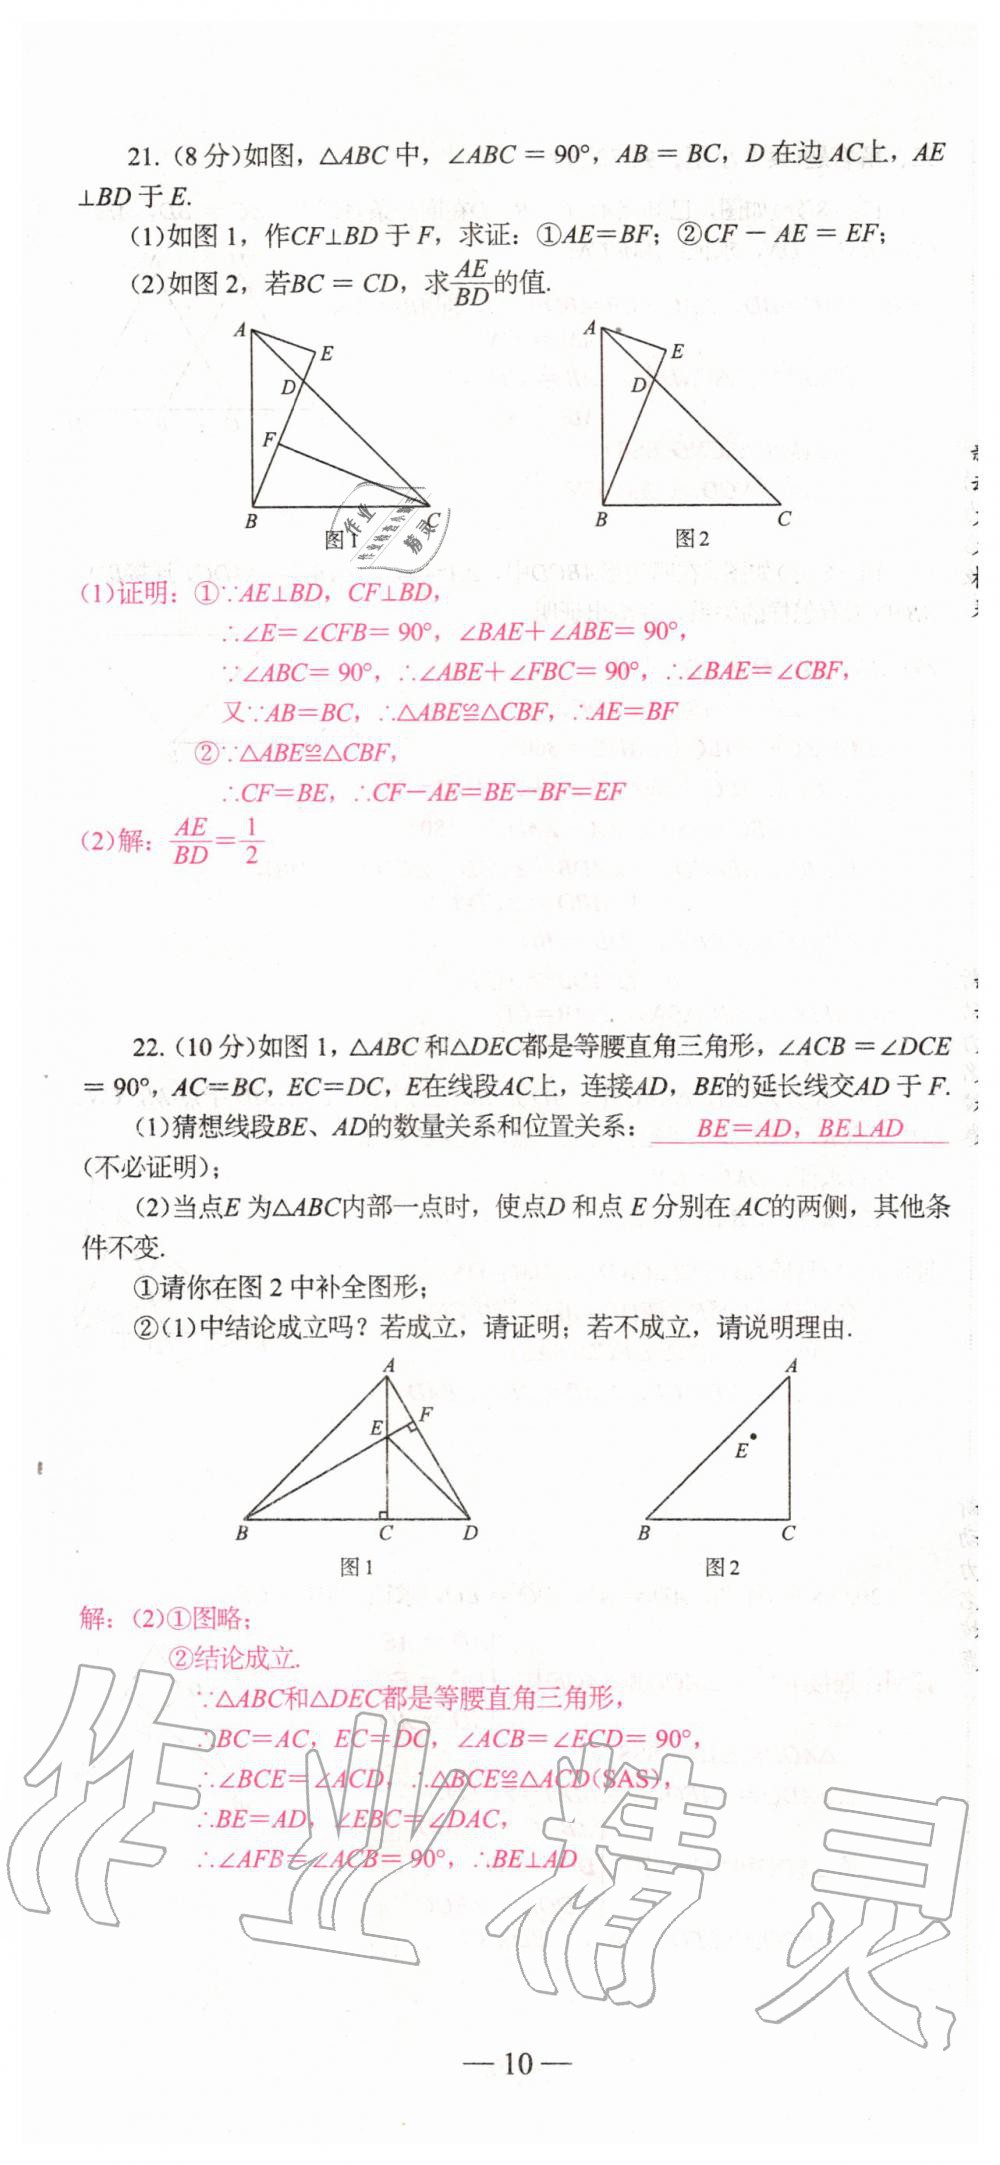 21. (8分)如图，△ABC中，∠ABC = 90°，AB = BC，D在边AC上，AE
⊥BD于E.
(1)如图1，作CF⊥BD于F，求证：①AE=BF；②CF－AE = EF；
(2)如图2，若BC = CD，求AE/BD的值.
A
E
D
F
B
C
图1
A
E
D
B
C
图2
作业
作业检查小助手
精灵
(1)证明：①∵AE⊥BD，CF⊥BD，
∴∠E=∠CFB= 90°，∠BAE+∠ABE= 90°，
∵∠ABC= 90°，∴∠ABE+∠FBC= 90°，∴∠BAE=∠CBF，
又∵AB=BC，∴△ABE≌△CBF，∴AE=BF
②∵△ABE≌△CBF，
∴CF=BE，∴CF－AE=BE－BF=EF
(2)解：AE/BD=1/2
22. (10分)如图1，△ABC和△DEC都是等腰直角三角形，∠ACB =∠DCE
= 90°，AC=BC，EC=DC，E在线段AC上，连接AD，BE的延长线交AD于F.
(1)猜想线段BE、AD的数量关系和位置关系：BE=AD，BE⊥AD
(不必证明)；
(2)当点E为△ABC内部一点时，使点D和点E分别在AC的两侧，其他条
件不变.
①请你在图2中补全图形；
②(1)中结论成立吗？若成立，请证明；若不成立，请说明理由.
A
F
E
B
C
D
图1
A
E
B
C
图2
解：(2)①图略；
②结论成立.
∵△ABC和△DEC都是等腰直角三角形，
∴BC=AC，EC=DC，∠ACB=∠ECD= 90°，
∴∠BCE=∠ACD，∴△BCE≌△ACD(SAS)，
∴BE=AD，∠EBC=∠DAC，
∴∠AFB=∠ACB= 90°，∴BE⊥AD
作业精灵
— 10 —